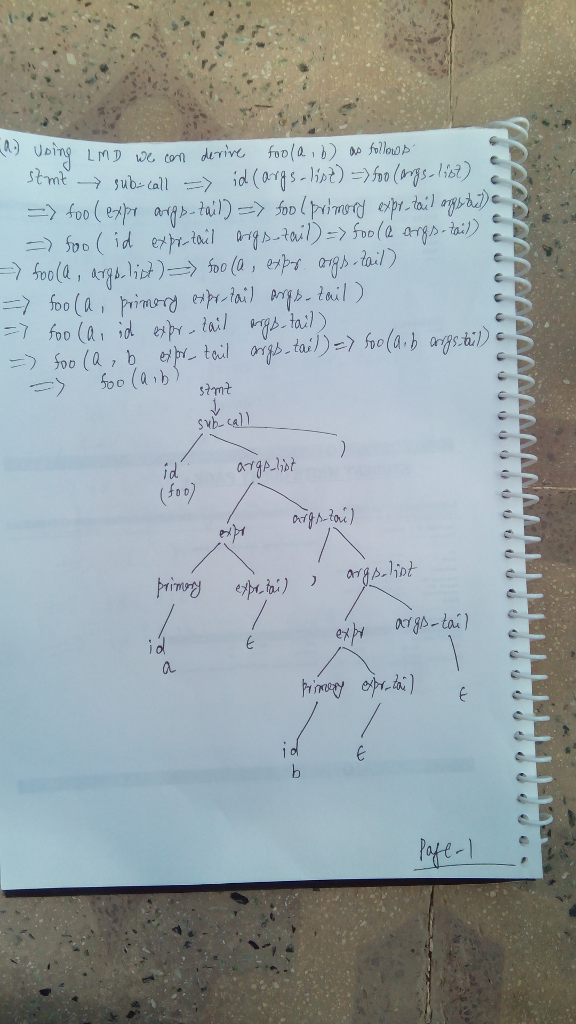 (a.) Using LMD we can derive foo(a,b) as follows.
stmt → sub-call => id(args-list) => foo(args-list)
=> foo(expr args-tail) => foo(primary expr-tail args-tail)
=> foo( id expr-tail args-tail) => foo(a args-tail)
=> foo(a, args-list) => foo(a, expr args-tail)
=> foo(a, primary expr-tail args-tail)
=> foo(a, id expr-tail args-tail)
=> foo(a, b expr-tail args-tail) => foo(a,b args-tail)
=> foo(a,b)
stmt
↓
sub-call
id args-list )
(foo)
expr args-tail
primary expr-tail , args-list
id ϵ expr args-tail
a
primary expr-tail ϵ
id ϵ
b
Page-1